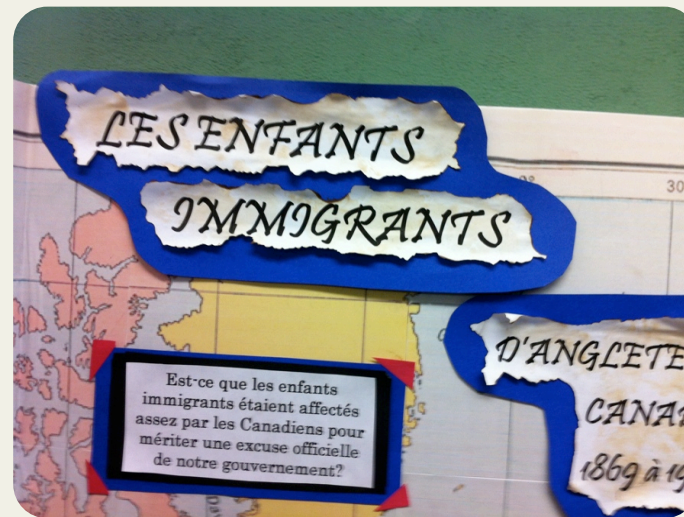 LES ENFANTS
IMMIGRANTS
30
D'ANGLETE
CANA
1869 à 19
Est-ce que les enfants
immigrants étaient affectés
assez par les Canadiens pour
mériter une excuse officielle
de notre gouvernement?